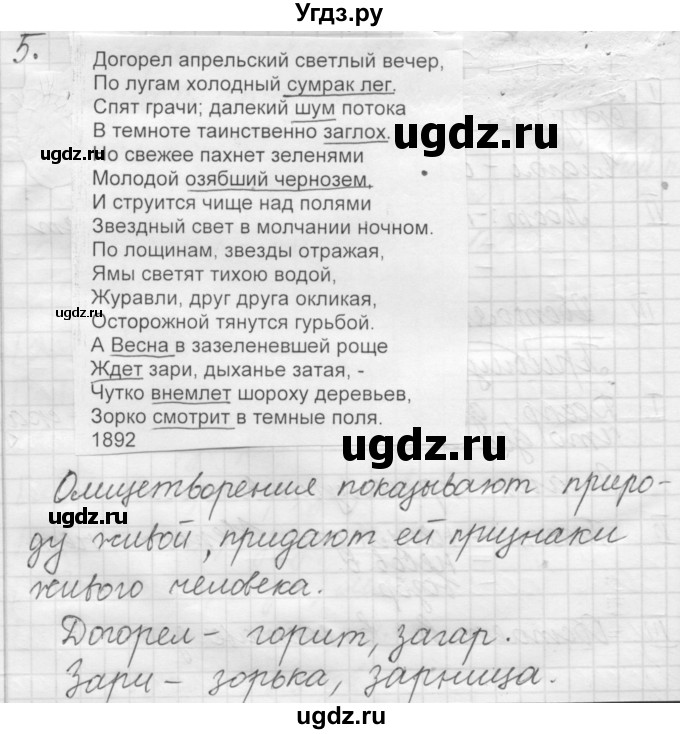 Угдз.ру
5.
Догорел апрельский светлый вечер,
По лугам холодный сумрак лег.
Спят грачи; далекий шум потока
В темноте таинственно заглох.
Но свежее пахнет зеленями
Молодой озябший чернозем,
И струится чище над полями
Звездный свет в молчании ночном.
По лощинам, звезды отражая,
Ямы светят тихою водой,
Журавли, друг друга окликая,
Осторожной тянутся гурьбой.
А Весна в зазеленевшей роще
Ждет зари, дыханье затая, -
Чутко внемлет шороху деревьев,
Зорко смотрит в темные поля.
1892
Олицетворения показывают приро-
ду живой, придают ей признаки
живого человека.
Догорел – горит, загар.
Зари – зорька, зарница.
ugdz.ru
ugdz.ru
ugdz.ru
ugdz.ru
ugdz.ru
ugdz.ru
ugdz.ru
ugdz.ru